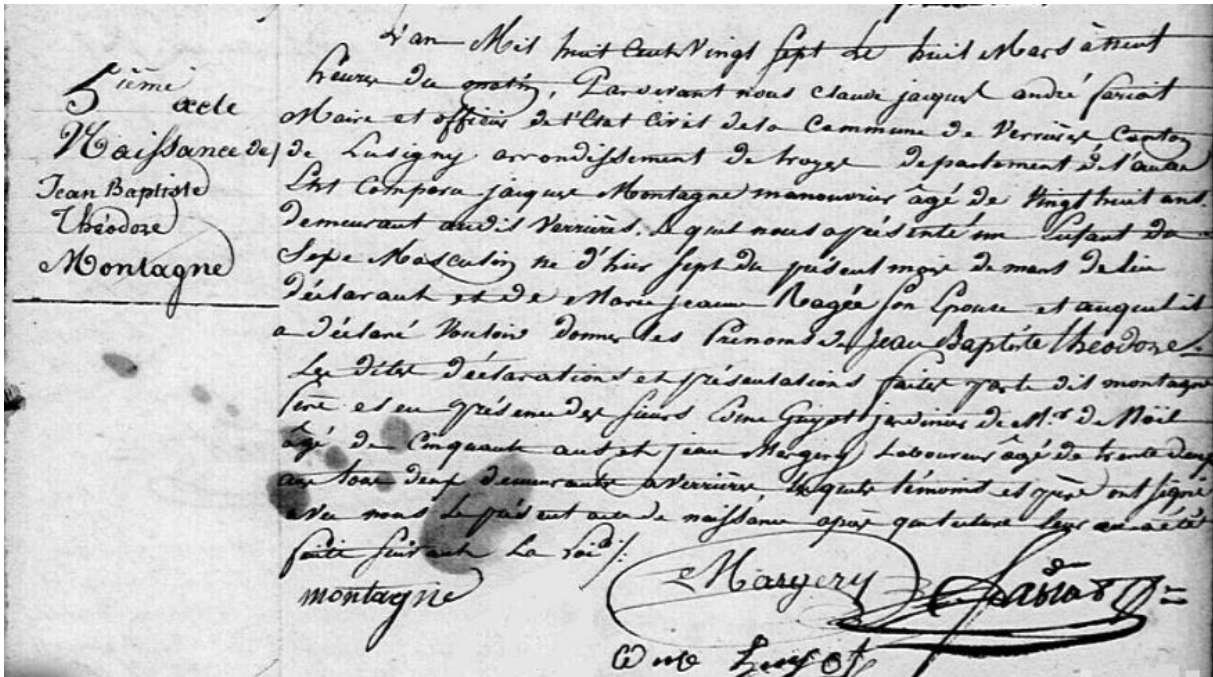 5ième acte
Naissance de
Jean Baptiste
Théodore
Montagne
L'an Mil huit Cent Vingt Sept le huit Mars à
heures du matin, Pardevant nous Claude jacques andré
Maire et officier de l'Etat Civil de la Commune de Verrières Canton
de Lusigny arrondissement de troyes departement de l'aube
Est Comparu jacques Montagne manouvrier âgé de Vingt huit ans
demeurant audit Verrières, lequel nous a présenté un Enfant du
Sexe Masculin né d'hier sept du présent mois de mars de lui
déclarant et de Marie jeanne Ragée son Epouse et auquel il
a déclaré Vouloir donner les Prénoms de Jean Baptiste théodore
Les dites déclarations et présentations faites par le dit montagne
père et en présence des sieurs Edme Guyot jardinier de Mr. de Noël
âgé de Cinquante ans et jean Margery Laboureur âgé de trente deux
ans tous deux demeurants a Verrières, lesquels témoins et père ont signé
avec nous le présent acte de naissance après que lecture leur en a été
faite suivant La Loi
montagne
Margery
Edme Guyot